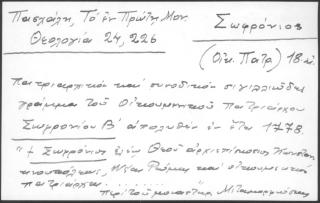 Πασχάλη, Τὸ ἐν Πρώτῃ Μον.
Θεολογία 24, 226
Σωφρόνιος
(Οἰκ. Πατρ.) 18 αἰ.
Πατριαρχικὸν καὶ συνοδικὸν σιγιλλιῶδες
γράμμα τοῦ Οἰκουμενικοῦ Πατριάρχου
Σωφρονίου Β' ἀπολυθὲν ἐν ἔτει 1778
"† Σωφρόνιος ἐλέῳ Θεοῦ ἀρχιεπίσκοπος Κωνσταν
τινουπόλεως, Νέας Ρώμης καὶ οἰκουμενικὸς
πατριάρχης
Περὶ τοῦ μοναστ.